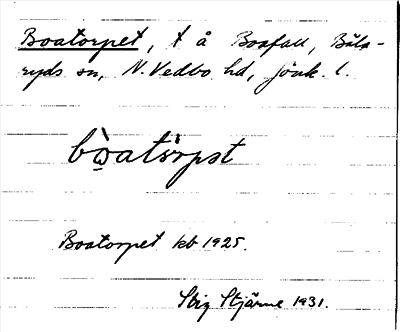 Boatorpet, t å Boafall, Bäla-
ryds sn, N. Vedbo hd, Jönk. l.
bòatórpst
Boatorpet kb 1925.
Stig Stjärne 1931.